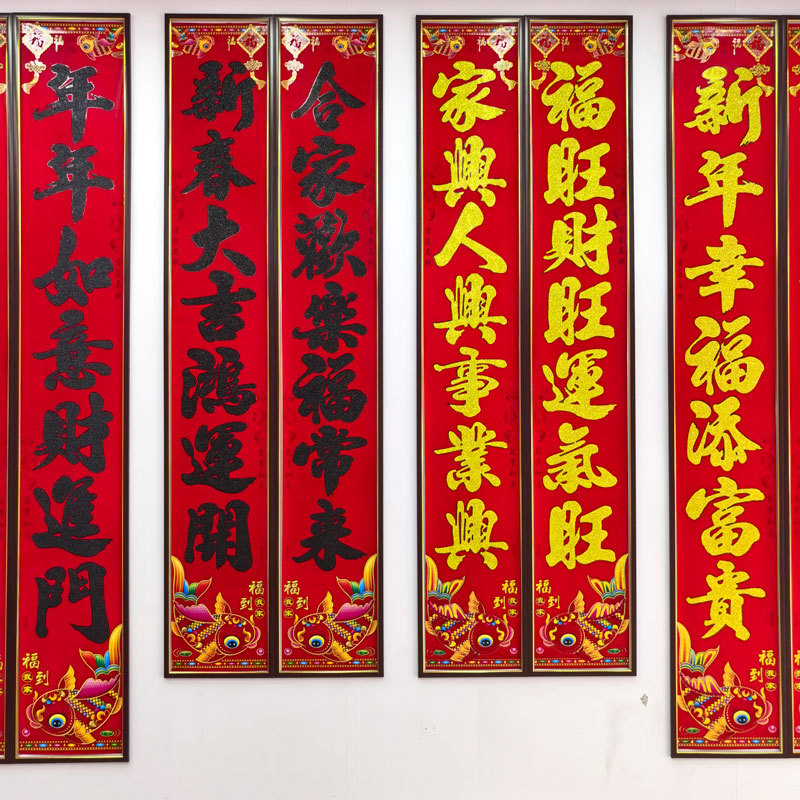 年年如意財進門
新春大吉鴻運開
合家歡樂福常来
家興人興事業興
福旺財旺運氣旺
新年幸福添富貴
福到我家
福到我家
福到我家
福到我家
福到我家
福到我家